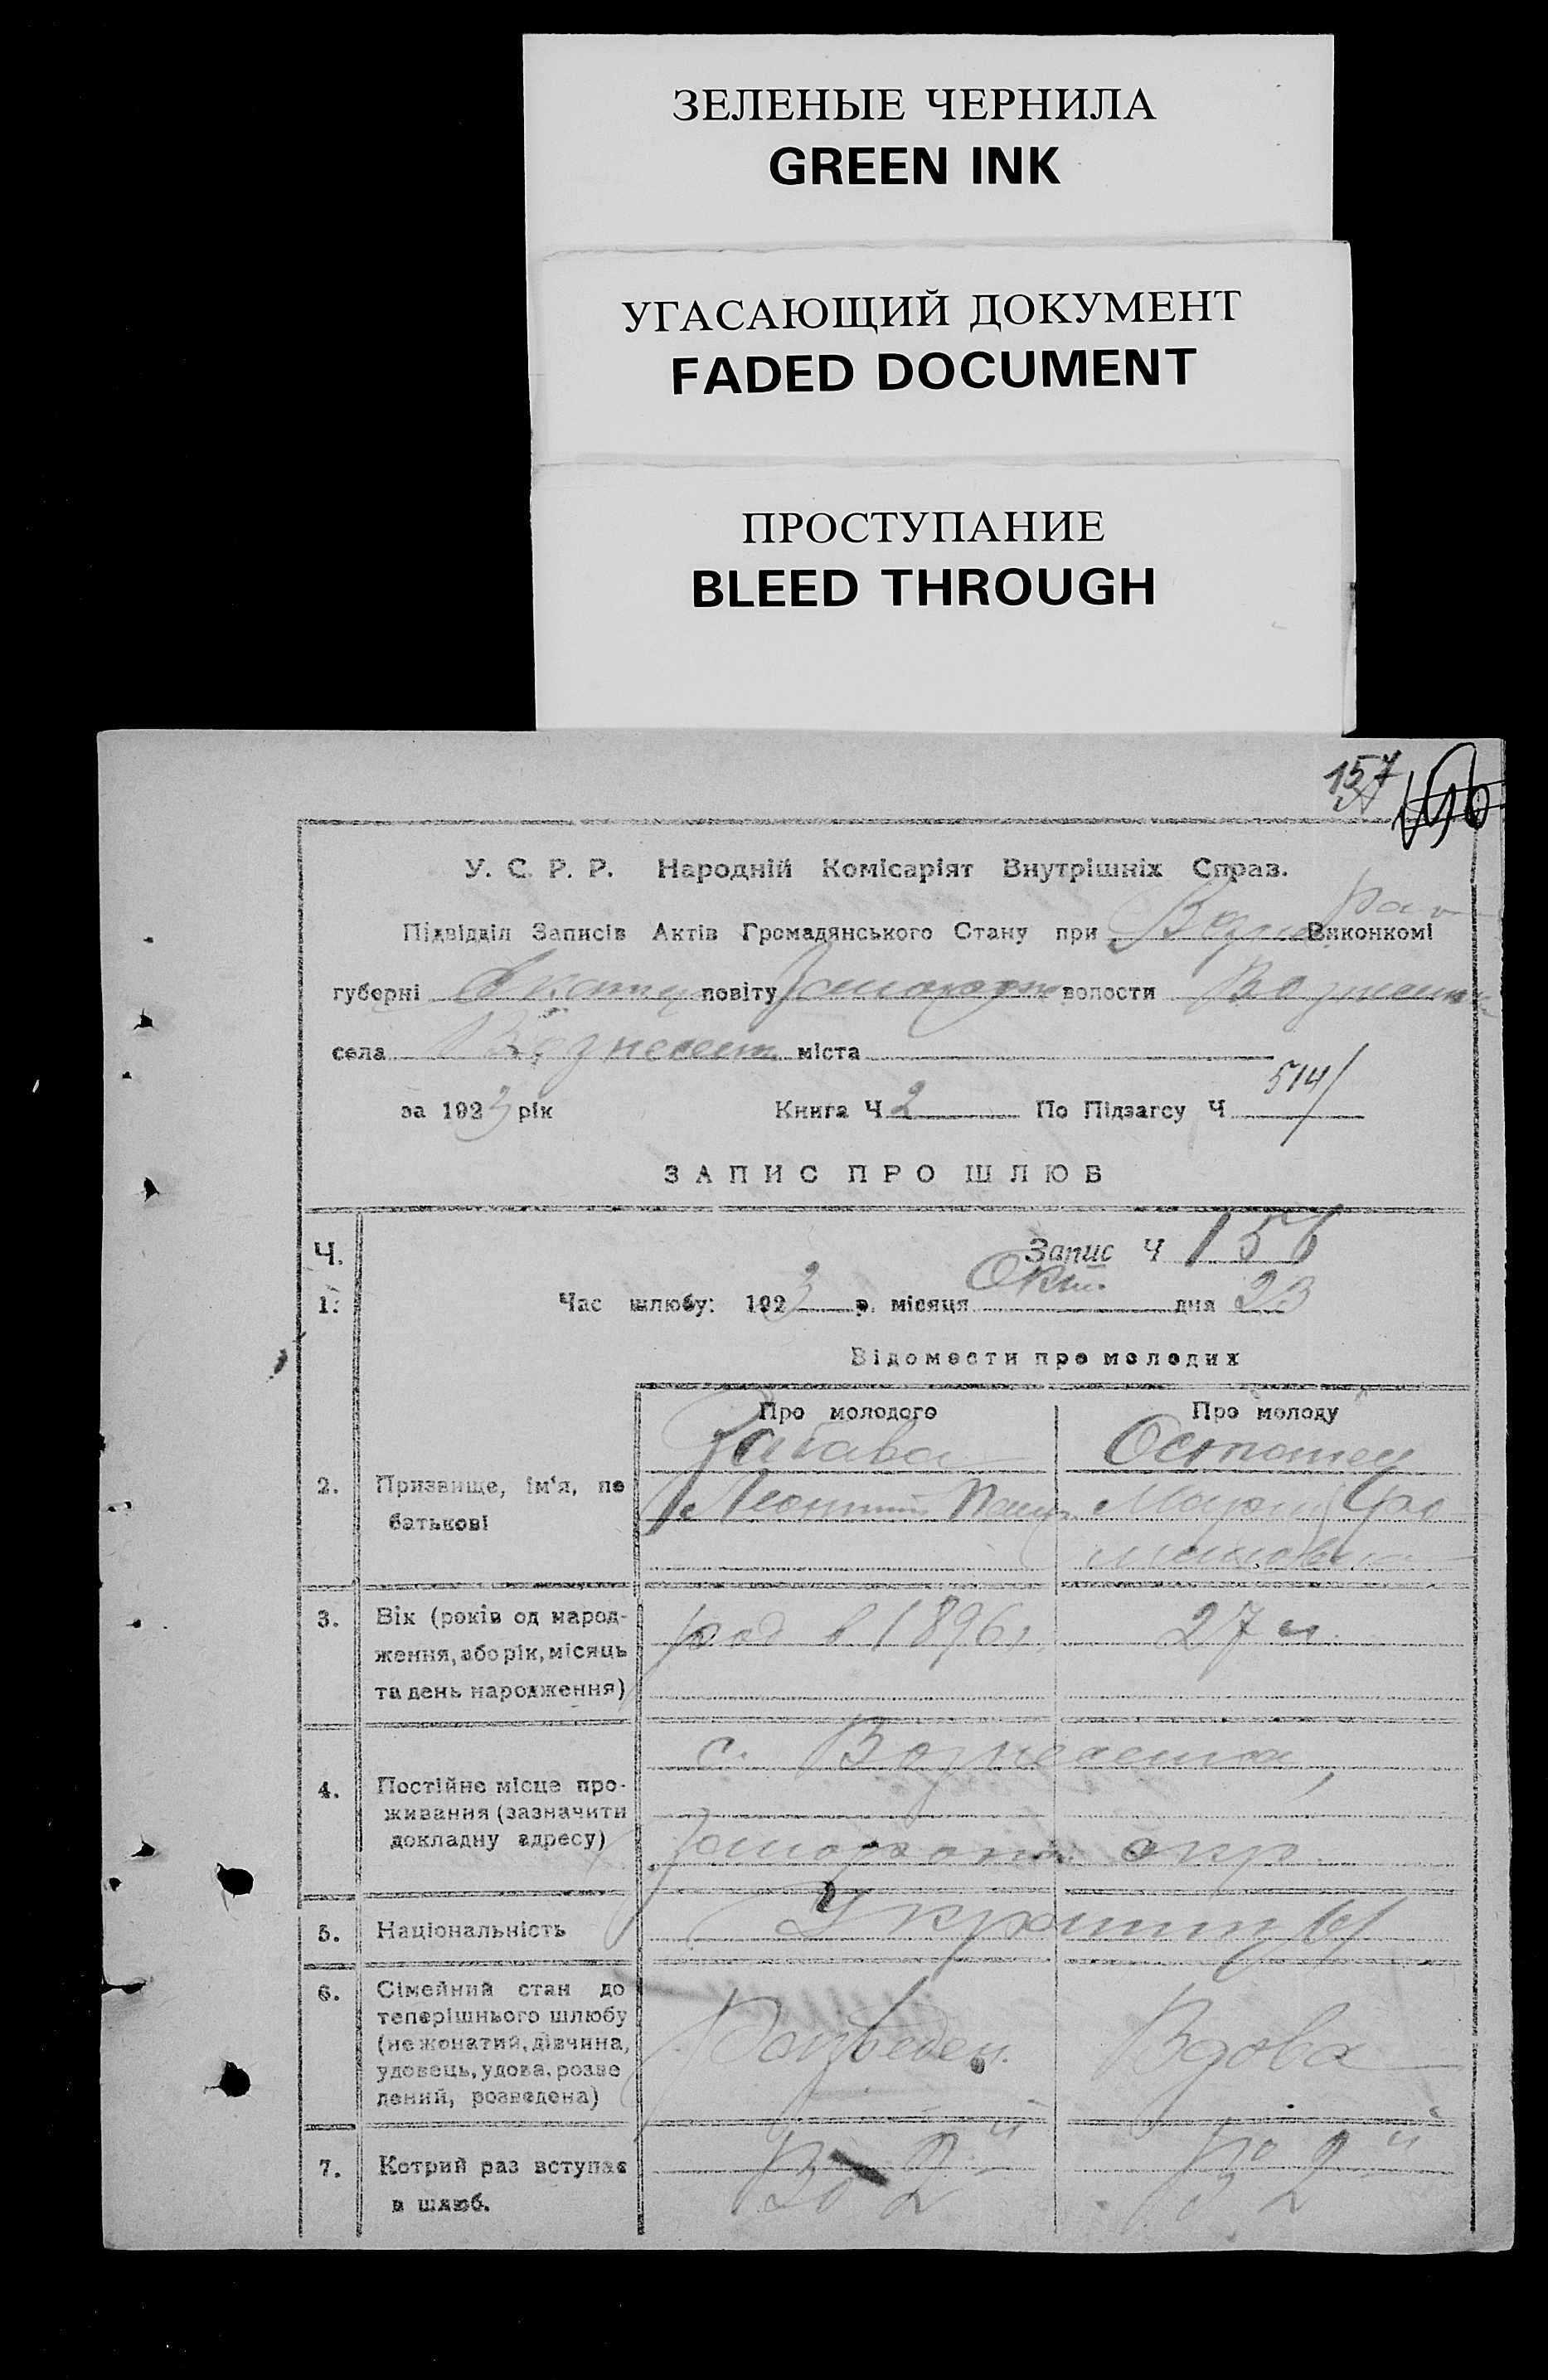 ЗЕЛЕНЫЕ ЧЕРНИЛА
GREEN INK
УГАСАЮЩИЙ ДОКУМЕНТ
FADED DOCUMENT
ПРОСТУПАНИЕ
BLEED THROUGH
157
У. С. Р. Р. Народній Комісаріят Внутрішніх Справ.
Підвідділ Записів Актів Громадянського Стану при Виконкомі
губерні повіту волости
села Вознесен міста
514
за 1923 рік Книга Ч 2 По Підзагсу Ч
ЗАПИС ПРО ШЛЮБ
Ч. Запис Ч 156
1. Час шлюбу: 1923 р. місяця Окт. дня 23
Відомости про молодих
Про молодого Про молоду
Забава
2. Призвище, ім'я, по
батькові
Леонтий
3. Вік (років од народ-
ження, або рік, місяць
та день народження)
род в 1896 г. 27 л.
с. Вознесенка,
4. Постійне місце про-
живання (зазначити
докладну адресу)
окр.
5. Національність
6. Сімейний стан до
теперішнього шлюбу
(не жонатий, дівчина,
удовець, удова, розве
дений, розведена)
Вдова
7. Котрий раз вступає
в шлюб.
2й 2й